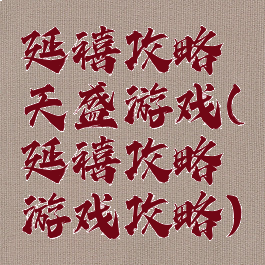 延禧攻略
天盛游戏(
延禧攻略
游戏攻略)